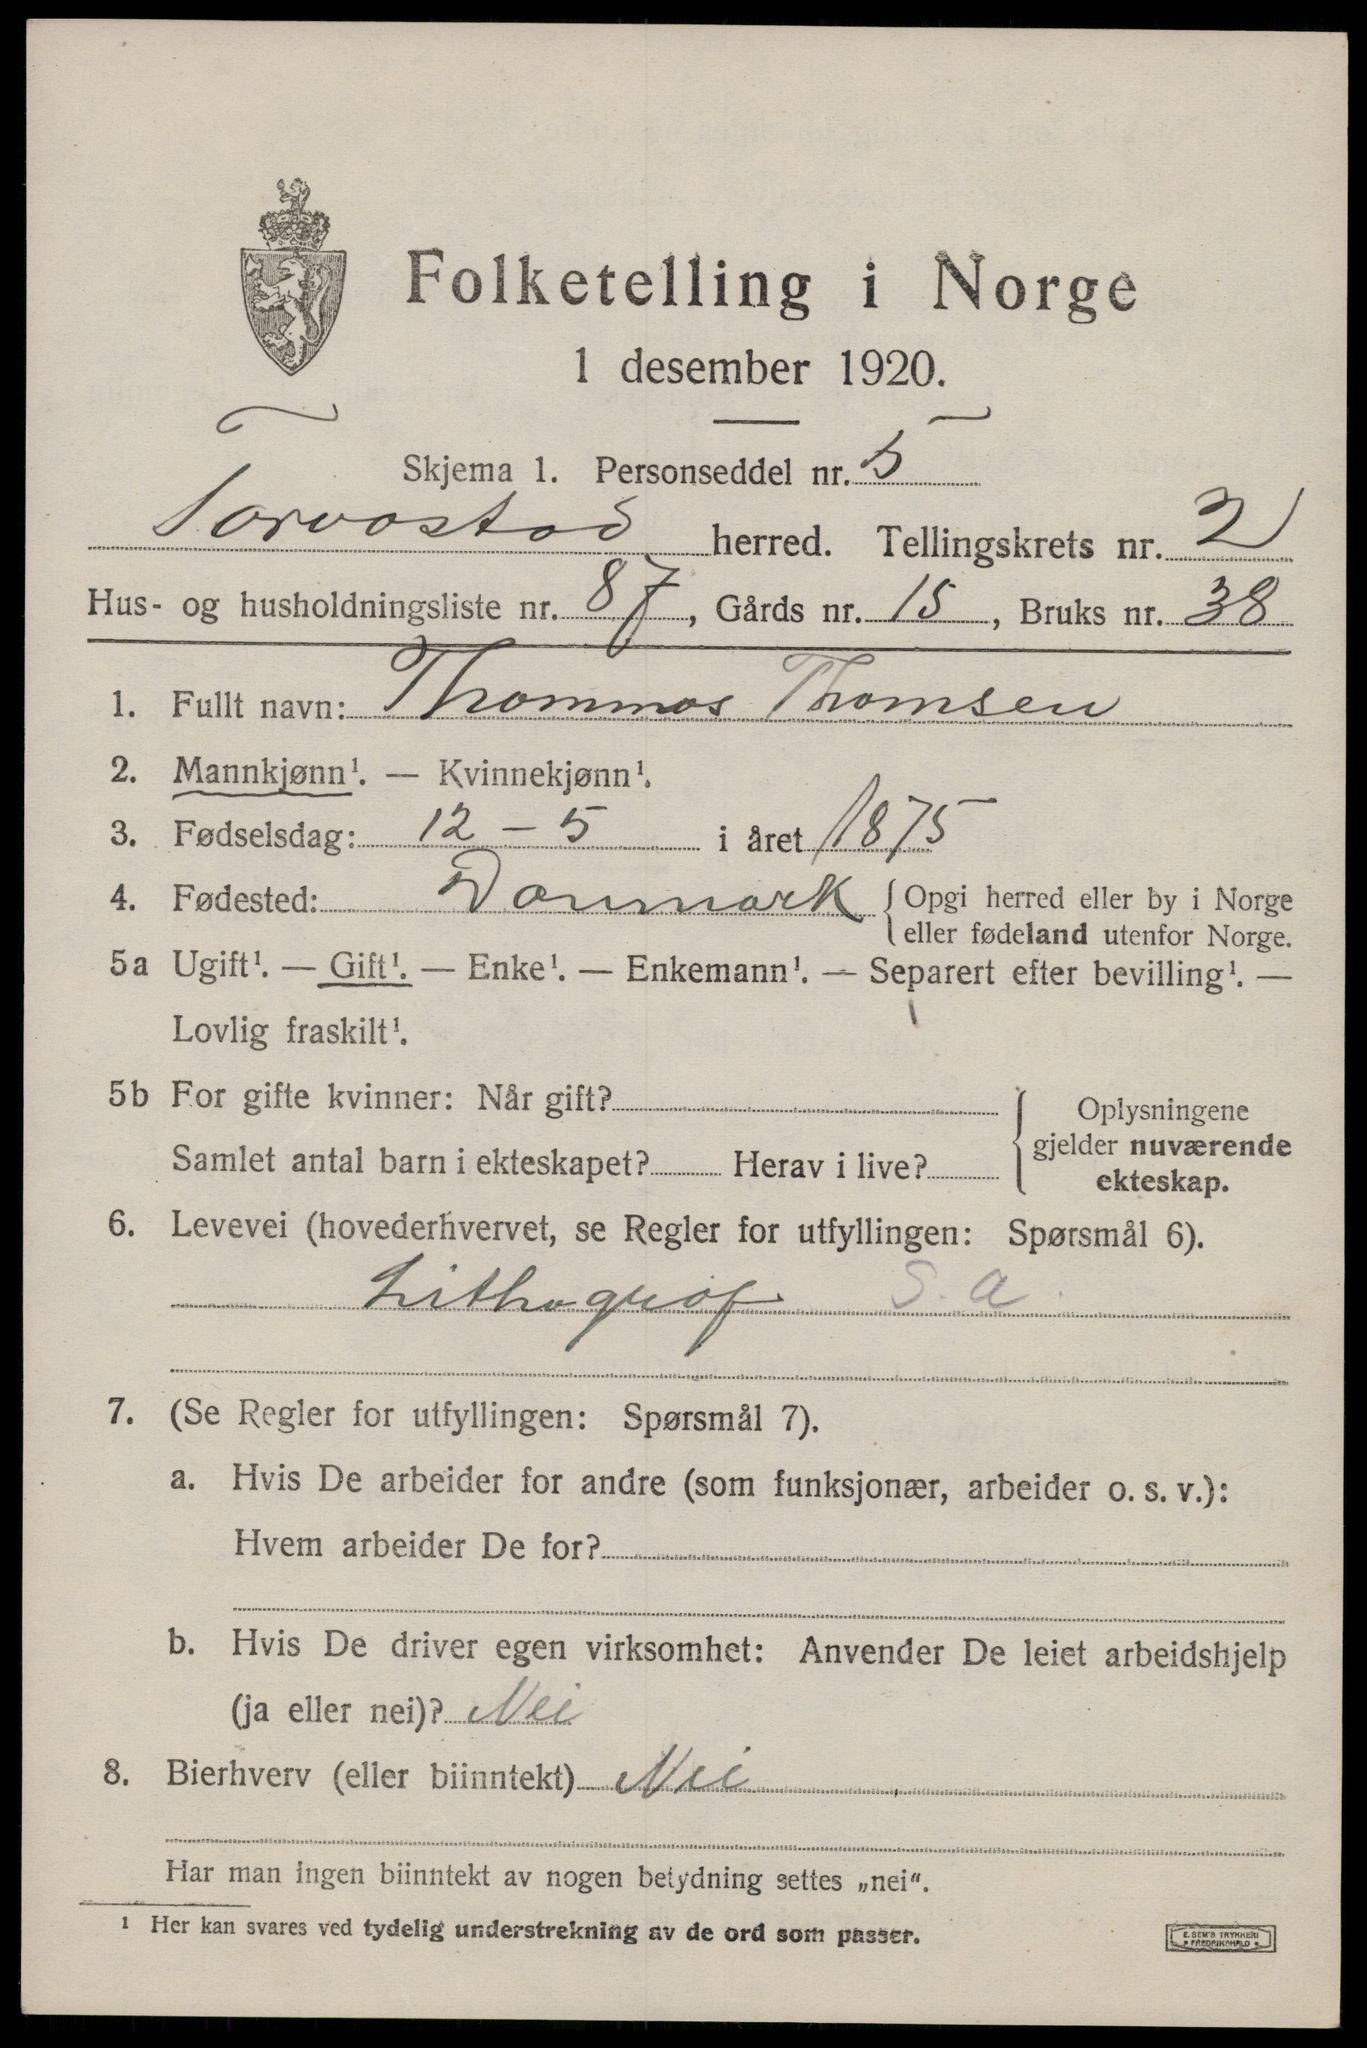 Folketelling i Norge
1 desember 1920.
Skjema 1. Personseddel nr. 5
Torvastad herred. Tellingskrets nr. 2
Hus- og husholdningsliste nr. 87, Gårds nr. 15, Bruks nr. 38
1. Fullt navn: Thommas Thomsen
2. Mannkjønn¹. — Kvinnekjønn¹.
3. Fødselsdag: 12 – 5 i året 1875
4. Fødested: Danmark { Opgi herred eller by i Norge
eller fødeland utenfor Norge.
5a Ugift¹. — Gift¹. — Enke¹. — Enkemann¹. — Separert efter bevilling¹. —
Lovlig fraskilt¹.
5b For gifte kvinner: Når gift?
Samlet antal barn i ekteskapet? Herav i live?
{ Oplysningene
gjelder nuværende
ekteskap.
6. Levevei (hovederhvervet, se Regler for utfyllingen: Spørsmål 6).
Lithograf S. a.
7. (Se Regler for utfyllingen: Spørsmål 7).
a. Hvis De arbeider for andre (som funksjonær, arbeider o. s. v.):
Hvem arbeider De for?
b. Hvis De driver egen virksomhet: Anvender De leiet arbeidshjelp
(ja eller nei)? Nei
8. Bierhverv (eller biinntekt) Nei
Har man ingen biinntekt av nogen betydning settes „nei“.
¹ Her kan svares ved tydelig understrekning av de ord som passer.
E. SEM'S TRYKKERI
FREDRIKSHALD